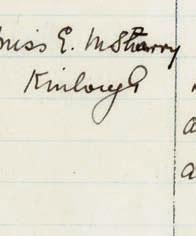 Miss E. McSharry
Kinlough
a
a